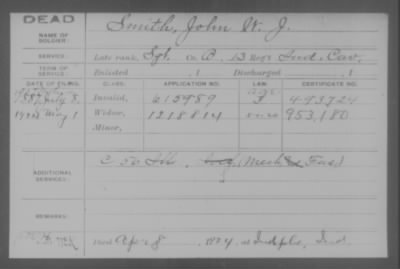 DEAD
NAME OF SOLDIER:
Smith, John W. J.
SERVICE:
Late rank, Sgt. Co. B, 13 Reg't Ind. Cav.
TERM OF SERVICE:
Enlisted , 1 Discharged , 1
DATE OF FILING. CLASS. APPLICATION NO. LAW. CERTIFICATE NO.
1887 July 8, Invalid, 615989 493724
1924 Aug 1 Widow, 1218814 953,180
Minor,
ADDITIONAL SERVICE:
C 56 Ill.
REMARKS:
Died Apr 8, 1924, at Indpls, Ind.